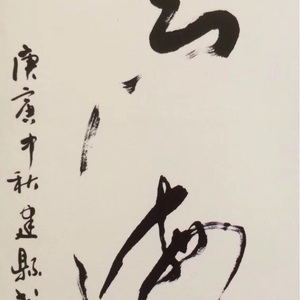 海
庚寅中秋建縣书